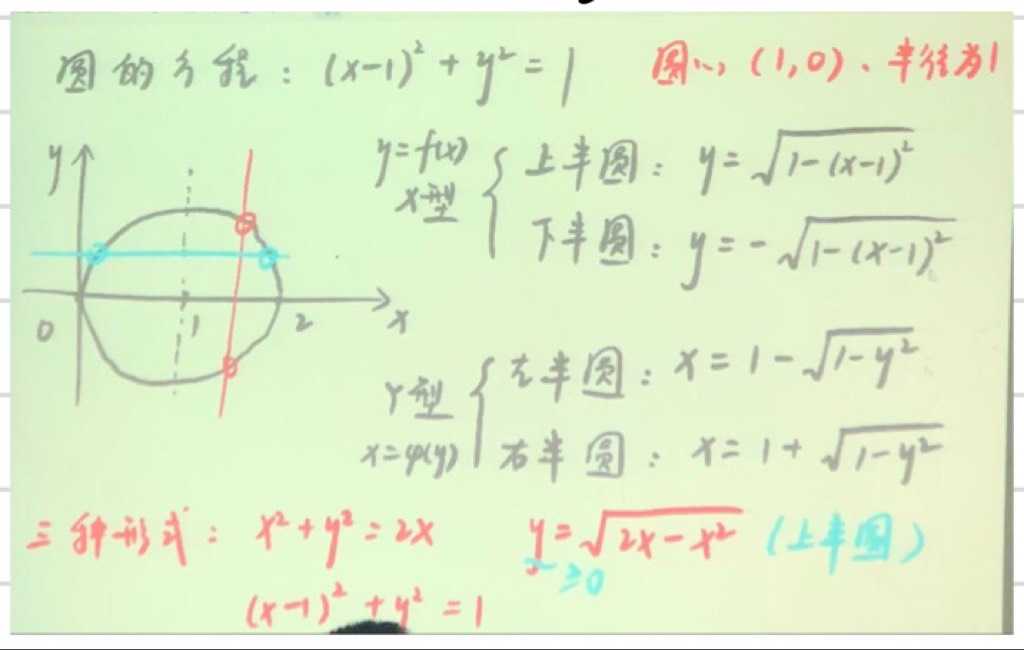 圆的方程：(x-1)² + y² = 1
圆心 (1,0)、半径为1
y
0
1
2
x
y=f(x)
X型
上半圆：y=√(1-(x-1)²)
下半圆：y=-√(1-(x-1)²)
Y型
x=φ(y)
左半圆：x=1-√(1-y²)
右半圆：x=1+√(1-y²)
三种形式：x²+y²=2x
y=√(2x-x²) (上半圆)
≥0
(x-1)²+y²=1